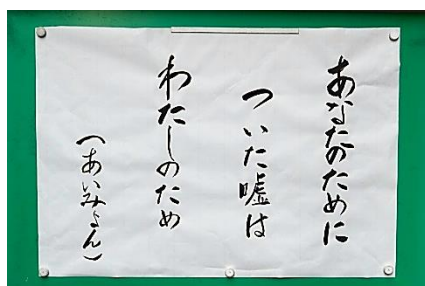 あなたのために
ついた嘘は
わたしのため
(あいみょん)